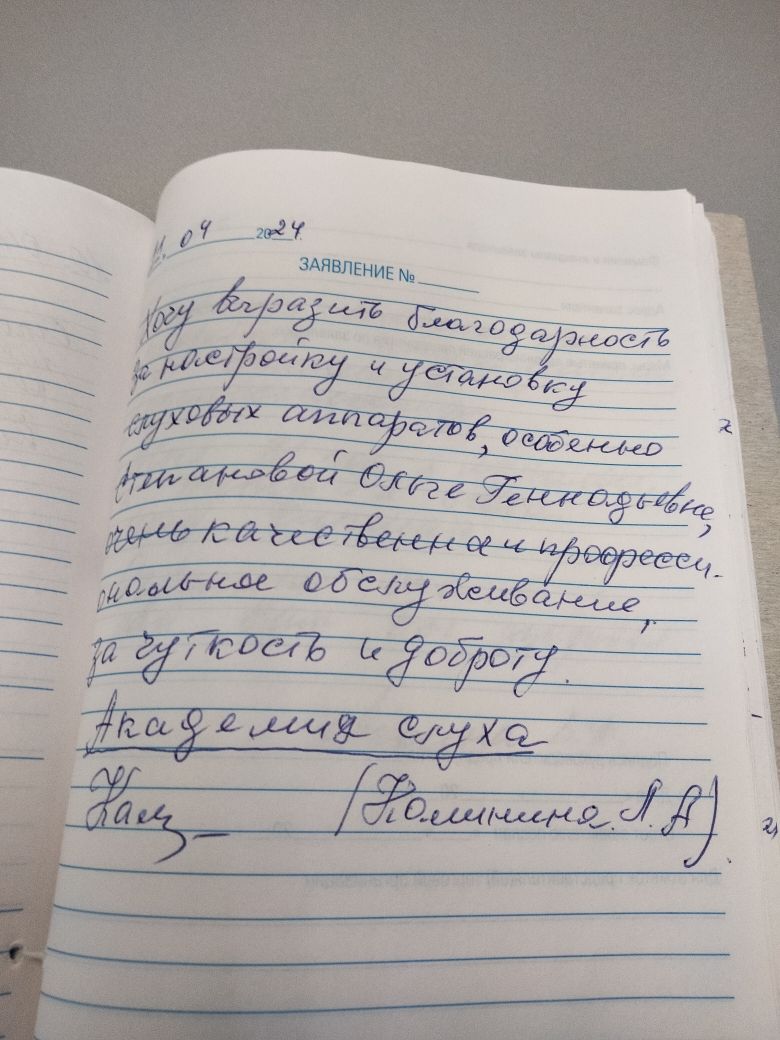 11. 04 2024.
ЗАЯВЛЕНИЕ №
Хочу выразить благодарность
за настройку и установку
слуховых аппаратов, особенно
Степановой Ольге Геннадьевне,
очень качественная и професси-
ональное обслуживание,
за чуткость и доброту.
Академия слуха
(Калинина Л. А)